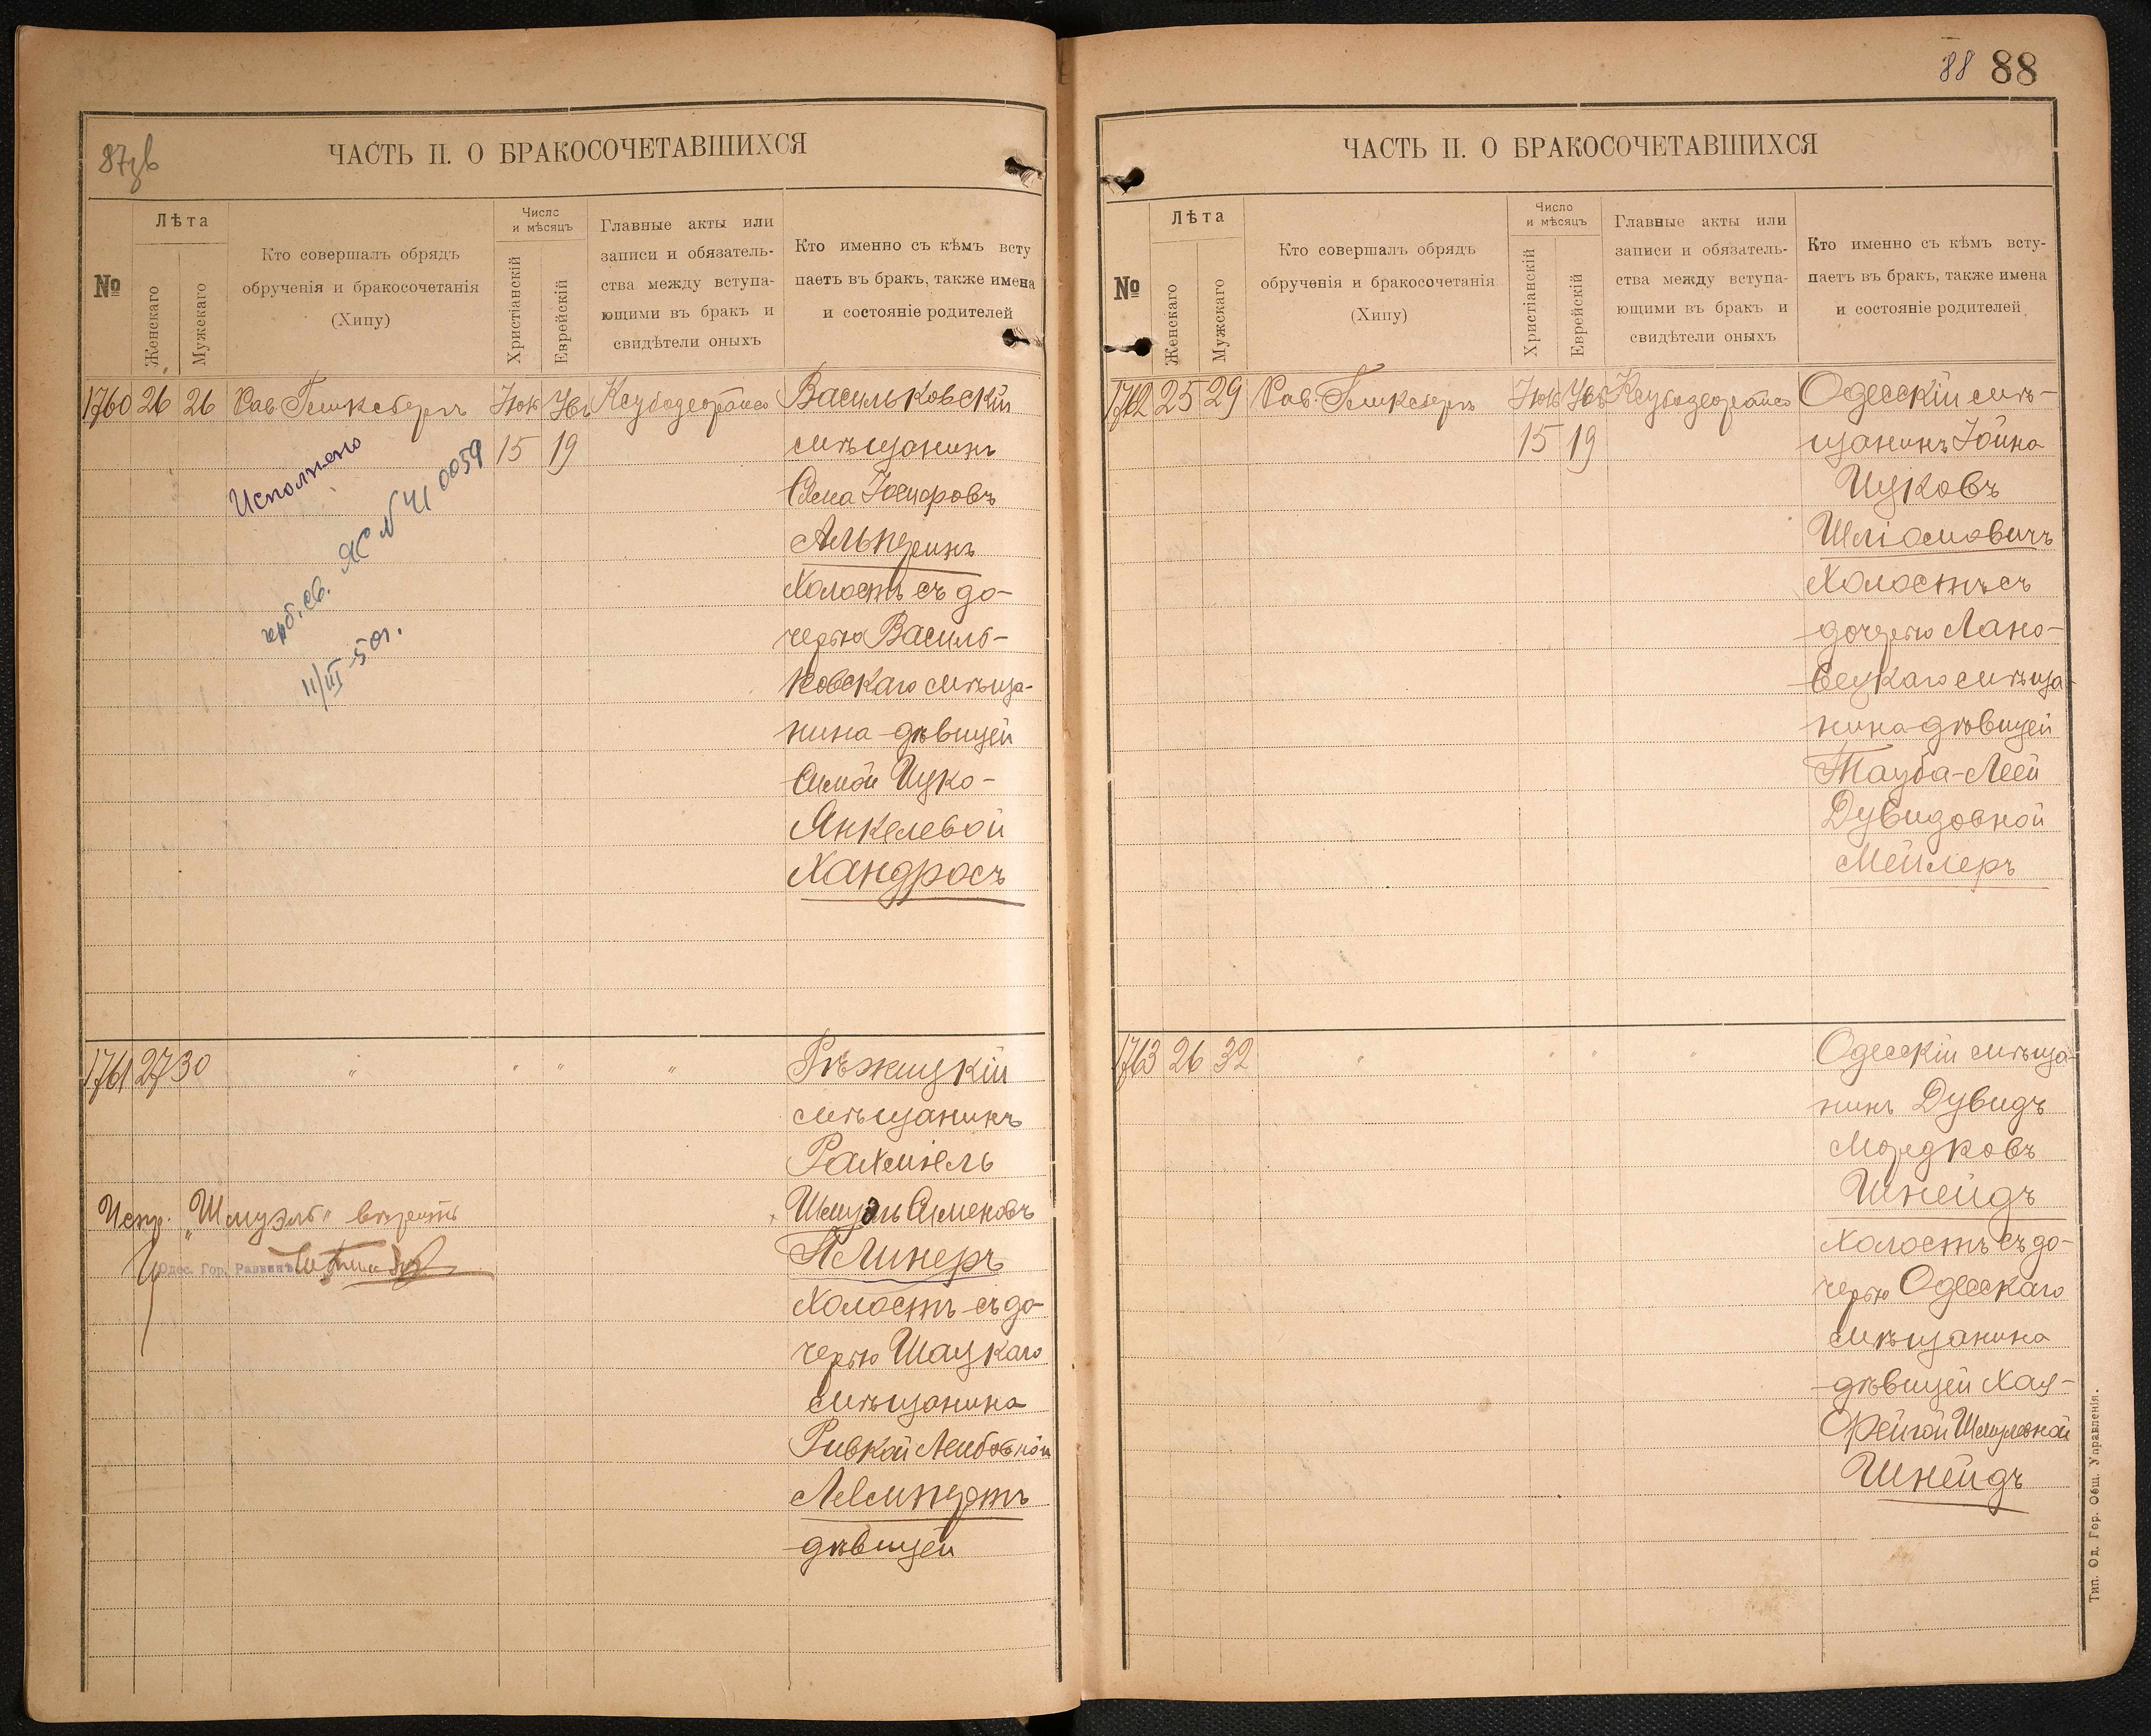 87зв
ЧАСТЬ II. О БРАКОСОЧЕТАВШИХСЯ
№
Лѣта
Женскаго
Мужскаго
Кто совершалъ обрядъ
обрученія и бракосочетанія
(Хипу)
Число
и мѣсяцъ
Христіанскій
Еврейскій
Главные акты или
записи и обязатель-
ства между вступа-
ющими въ бракъ и
свидѣтели оныхъ
Кто именно съ кѣмъ всту
паетъ въ бракъ, также имена
и состояніе родителей
1760 26 26 Рав. Гинксбергъ
15 19
Васильковскій
мѣщанинъ
Альперинъ
Холостъ съ до-
черью Василь-
ковскаго мѣща-
нина дѣвицей
Симой Ицко-
Янкелевой
Хандросъ
Исполнено
герб. св. ЯС № 410059
11/III-50г.
1761 27 30 " " " "
Рѣжицкій
мѣщанинъ
Рахміель
Шмуэль Сименовъ
Плинеръ
Холостъ съ до-
черью Шацкаго
мѣщанина
Ривкой Лейбовной
Лемпертъ
дѣвицей
Испр. „Шмуэль" вѣрить
Одес. Гор. Раввинъ
88 88
ЧАСТЬ II. О БРАКОСОЧЕТАВШИХСЯ
№
Лѣта
Женскаго
Мужскаго
Кто совершалъ обрядъ
обрученія и бракосочетанія
(Хипу)
Число
и мѣсяцъ
Христіанскій
Еврейскій
Главные акты или
записи и обязатель-
ства между вступа-
ющими въ бракъ и
свидѣтели оныхъ
Кто именно съ кѣмъ всту-
паетъ въ бракъ, также имена
и состояніе родителей
1762 25 29 Рав. Гинксбергъ
15 19
Одесскій мѣ-
щанинъ Іойна
Ицковъ
Шліомовичъ
Холостъ съ
дочерью Лано-
вецкаго мѣща-
нина дѣвицей
Тауба-Леей
Дувидовной
Мейлеръ
1763 26 32 " " " "
Одесскій мѣща-
нинъ Дувидъ
Мордковъ
Шнейдъ
Холостъ съ до-
черью Одесскаго
мѣщанина
дѣвицей Хая-
Фейгой Шмулевной
Шнейдъ
Тип. Од. Гор. Общ. Управленія.